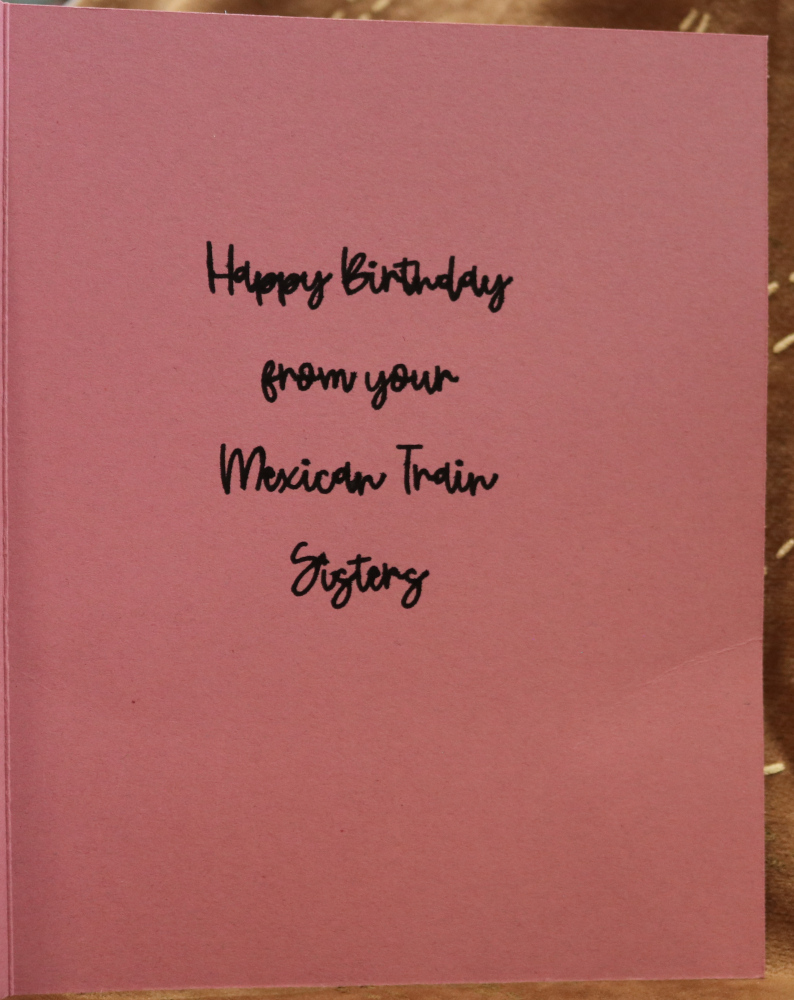 Happy Birthday
from your
Mexican Train
Sisters